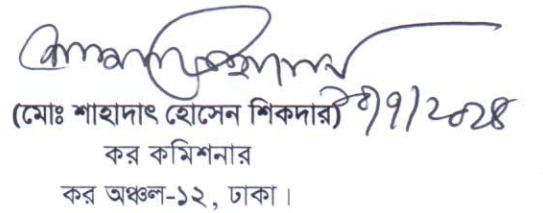 (মোঃ শাহাদাৎ হোসেন শিকদার)
কর কমিশনার
কর অঞ্চল-১২, ঢাকা।